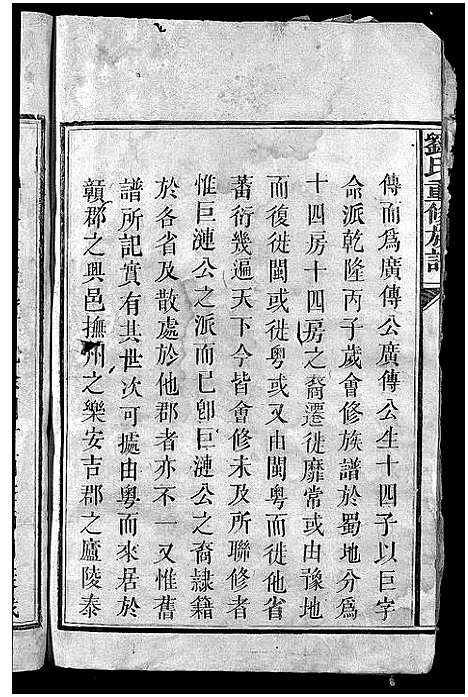 劉氏重修族譜
傳而爲廣傳公廣傳公生十四子以巨字
命派乾隆丙子歲會修族譜於蜀地分爲
十四房十四房之裔遷徙靡常或由豫地
而復徙閩或徙粵或又由閩粵而徙他省
蕃衍幾遍天下今皆會修未及所聯修者
惟巨漣公之派而已卽巨漣公之裔隷籍
於各省及散處於他郡者亦不一又惟舊
譜所記實有其世次可據由粵而來居於
贛郡之興邑撫州之樂安吉郡之廬陵泰